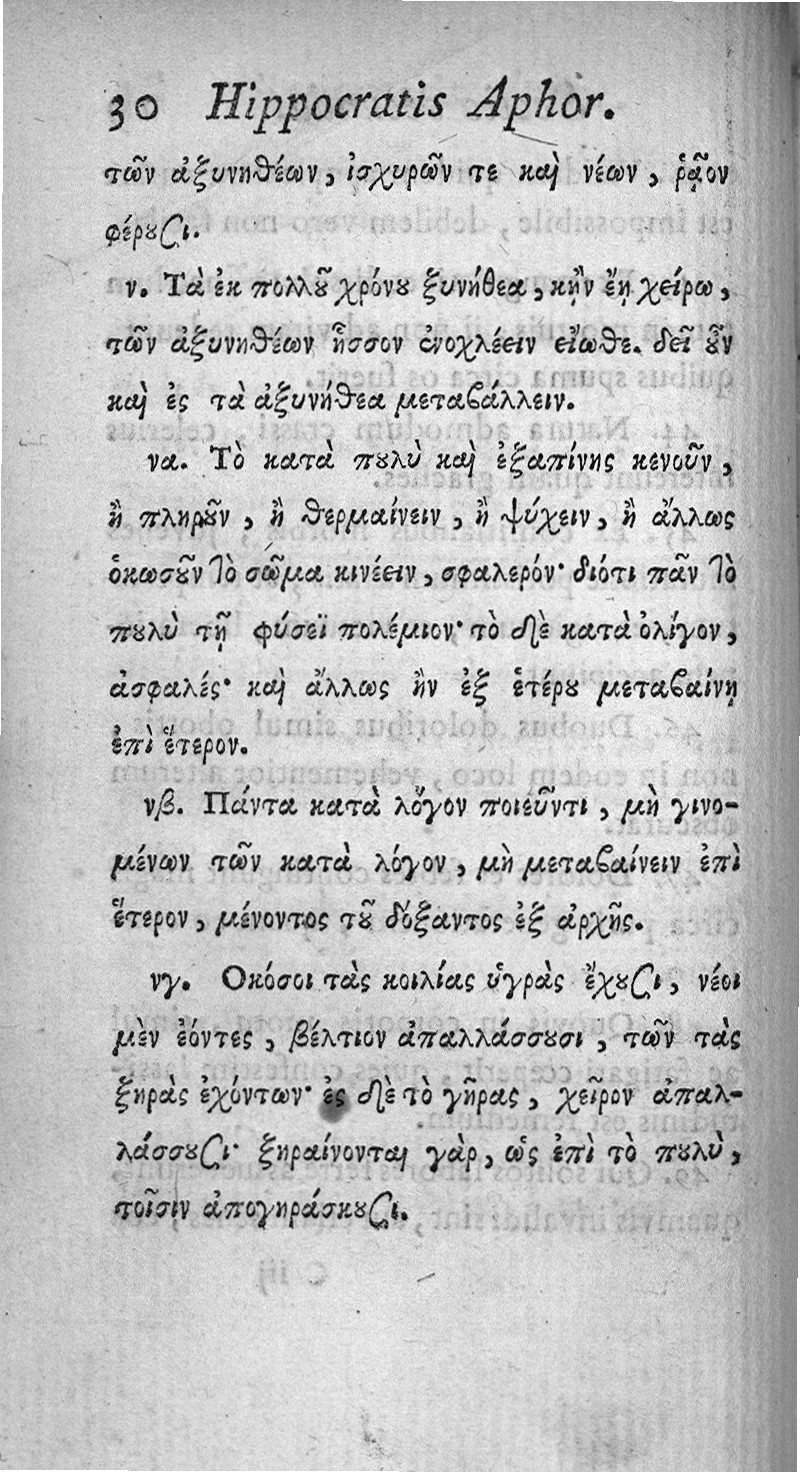 30 Hippocratis Aphor.
τῶν ἀξυνηθέων, ἰσχυρῶν τε καὶ νέων, ῥᾷον
φέρουσι.
ν. Τὰ ἐκ πολλοῦ χρόνου ξυνήθεα, κἢν ἔῃ χείρω,
τῶν ἀξυνηθέων ἧσσον ἐνοχλέειν εἴωθε. δεῖ οὖν
καὶ ἐς τὰ ἀξυνήθεα μεταβάλλειν.
να. Τὸ κατὰ πουλὺ καὶ ἐξαπίνης κενοῦν,
ἢ πληροῦν, ἢ θερμαίνειν, ἢ ψύχειν, ἢ ἄλλως
ὁκωσοῦν τὸ σῶμα κινέειν, σφαλερόν· διότι πᾶν τὸ
πουλὺ τῇ φύσεϊ πολέμιον· τὸ δὲ κατὰ ὀλίγον,
ἀσφαλές· καὶ ἄλλως ἢν ἐξ ἑτέρου μεταβαίνῃ
ἐπὶ ἕτερον.
νβ. Πάντα κατὰ λόγον ποιεῦντι, μὴ γινο-
μένων τῶν κατὰ λόγον, μὴ μεταβαίνειν ἐπὶ
ἕτερον, μένοντος τοῦ δόξαντος ἐξ ἀρχῆς.
νγ. Οκόσοι τὰς κοιλίας ὑγρὰς ἔχουσι, νέοι
μὲν ἐόντες, βέλτιον ἀπαλλάσσουσι, τῶν τὰς
ξηρὰς ἐχόντων· ἐς δὲ τὸ γῆρας, χεῖρον ἀπαλ-
λάσσουσι· ξηραίνονται γὰρ, ὡς ἐπὶ τὸ πουλὺ,
τοῖσιν ἀπογηράσκουσι.